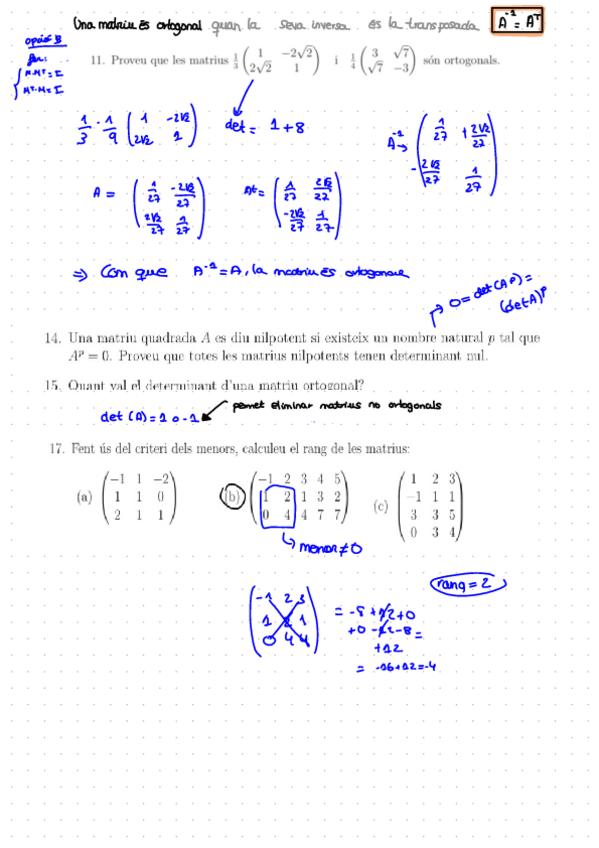 Una matriu és ortogonal quan la seva inversa és la transposada A⁻¹ = Aᵀ
opció B
fer:
M·Mᵀ = I
Mᵀ·M = I
11. Proveu que les matrius 1/3 (1 −2√2; 2√2 1) i 1/4 (3 √7; √7 −3) són ortogonals.
1/3 · 1/9 (1 -2√2; 2√2 1) det = 1+8 A⁻¹ → (1/27 +2√2/27; -2√2/27 1/27)
A = (1/27 -2√2/27; 2√2/27 1/27) Aᵗ = (1/27 2√2/27; -2√2/27 1/27)
⇒ Com que A⁻¹ = A, la matriu és ortogonal
0 = det(Aᵖ) =
(det A)ᵖ
14. Una matriu quadrada A es diu nilpotent si existeix un nombre natural p tal que
Aᵖ = 0. Proveu que totes les matrius nilpotents tenen determinant nul.
15. Quant val el determinant d'una matriu ortogonal?
det (A) = 1 o -1 permet eliminar matrius no ortogonals
17. Fent ús del criteri dels menors, calculeu el rang de les matrius:
(a) (−1 1 −2; 1 1 0; 2 1 1) (b) (−1 2 3 4 5; 1 2 1 3 2; 0 4 4 7 7) (c) (1 2 3; −1 1 1; 3 3 5; 0 3 4)
menor ≠ 0
rang = 2
(-1 2 3; 1 2 1; 0 4 4) = -8 + 12 + 0
+0 - 12 - 8 =
+12
= -16+12 = -4